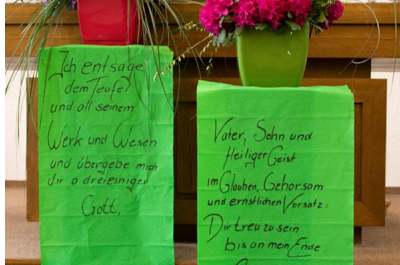 Ich entsage
dem Teufel
und all seinem
Werk und Wesen
und übergebe mich
dir o dreieiniger
Gott,
Vater, Sohn und
Heiliger Geist
im Glauben, Gehorsam
und ernstlichen Vorsatz:
Dir treu zu sein
bis an mein Ende.